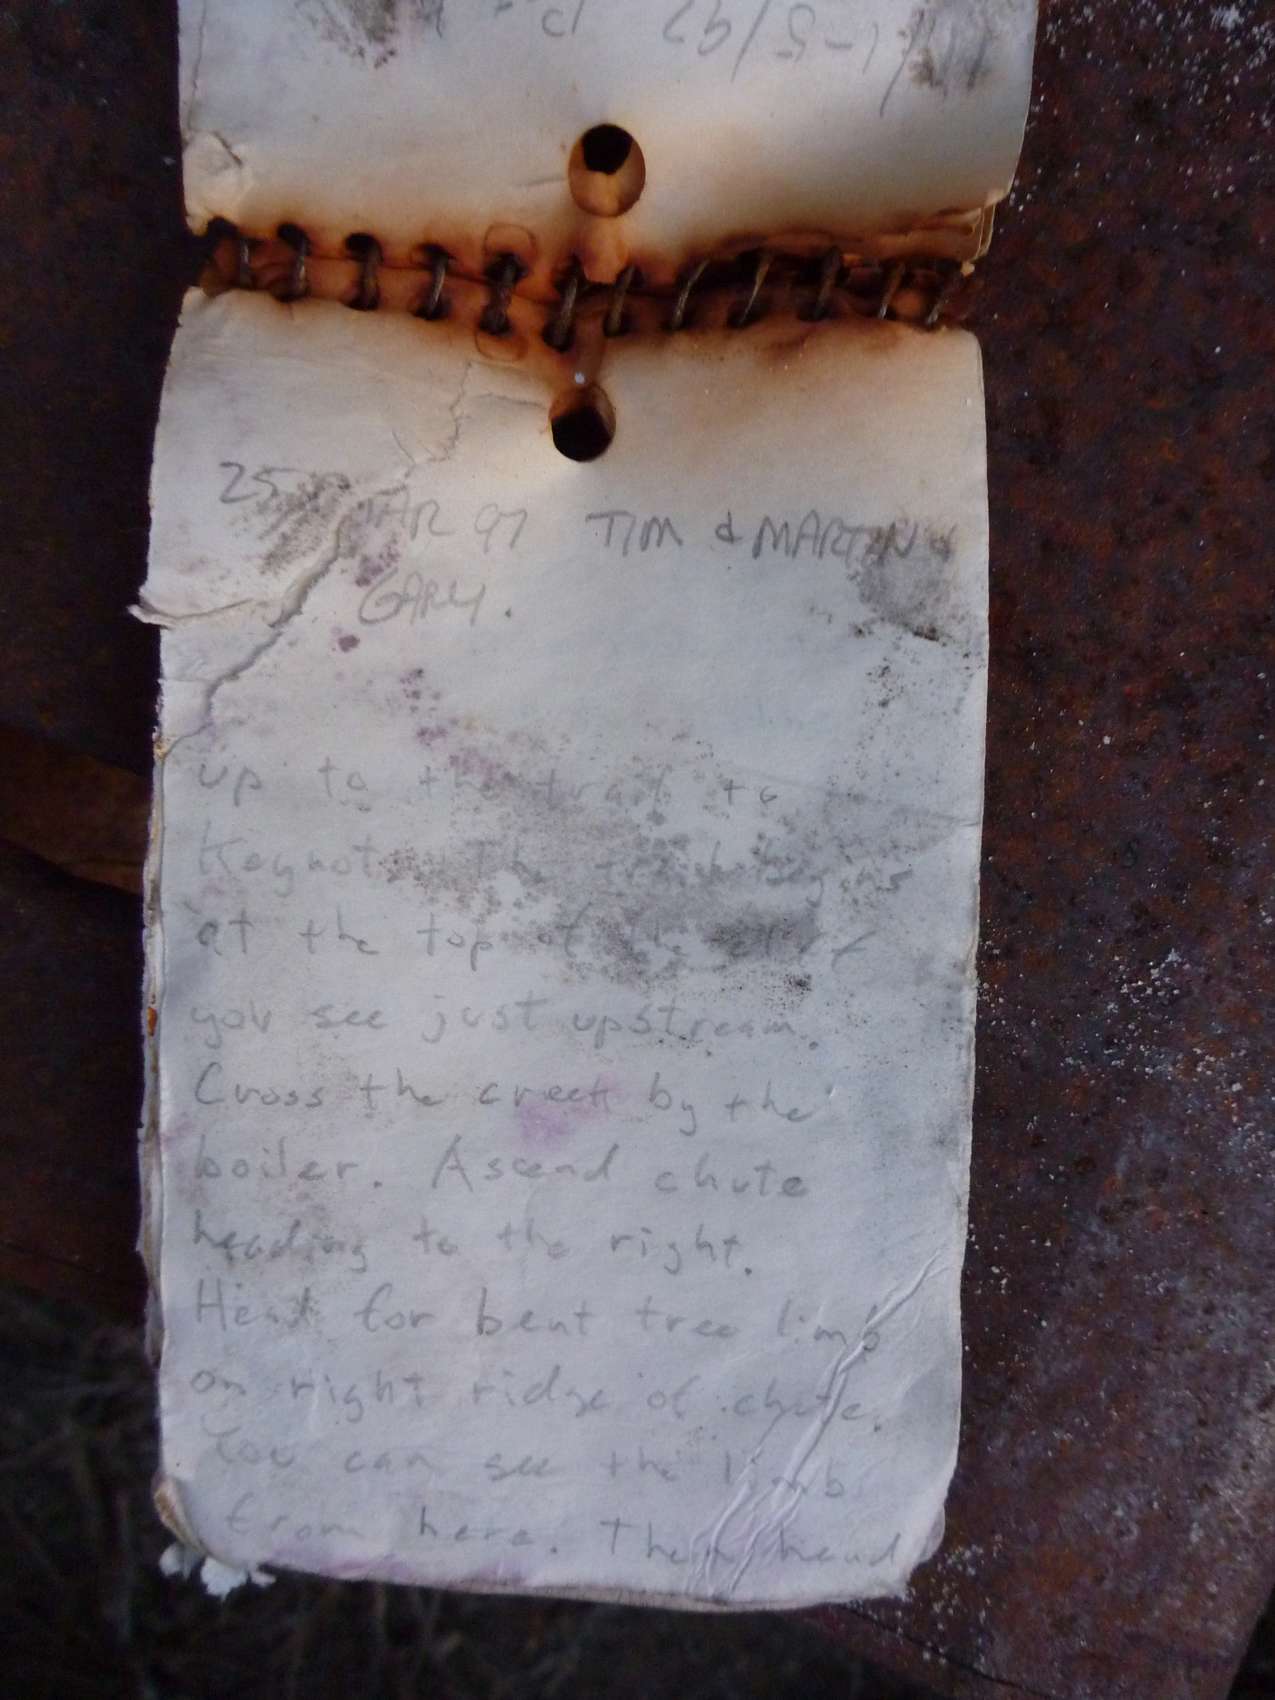 1-5/97
25 MAR 97 TIM & MARTIN &
GARY.
up to the trail to
Keynot. The trail begins
at the top of the
you see just upstream.
Cross the creek by the
boiler. Ascend chute
heading to the right.
Head for bent tree limb
on right ridge of chute.
You can see the limb
from here. Then head